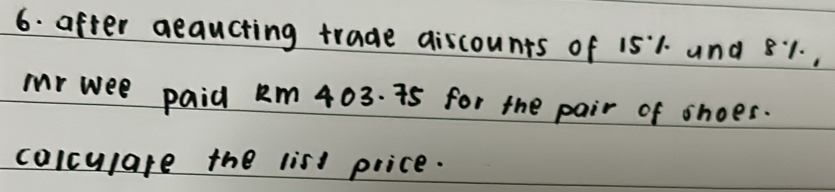 6. after deaucting trade discounts of 15% and 8%,
Mr Wee paid RM 403.75 for the pair of shoes.
calculate the list price.